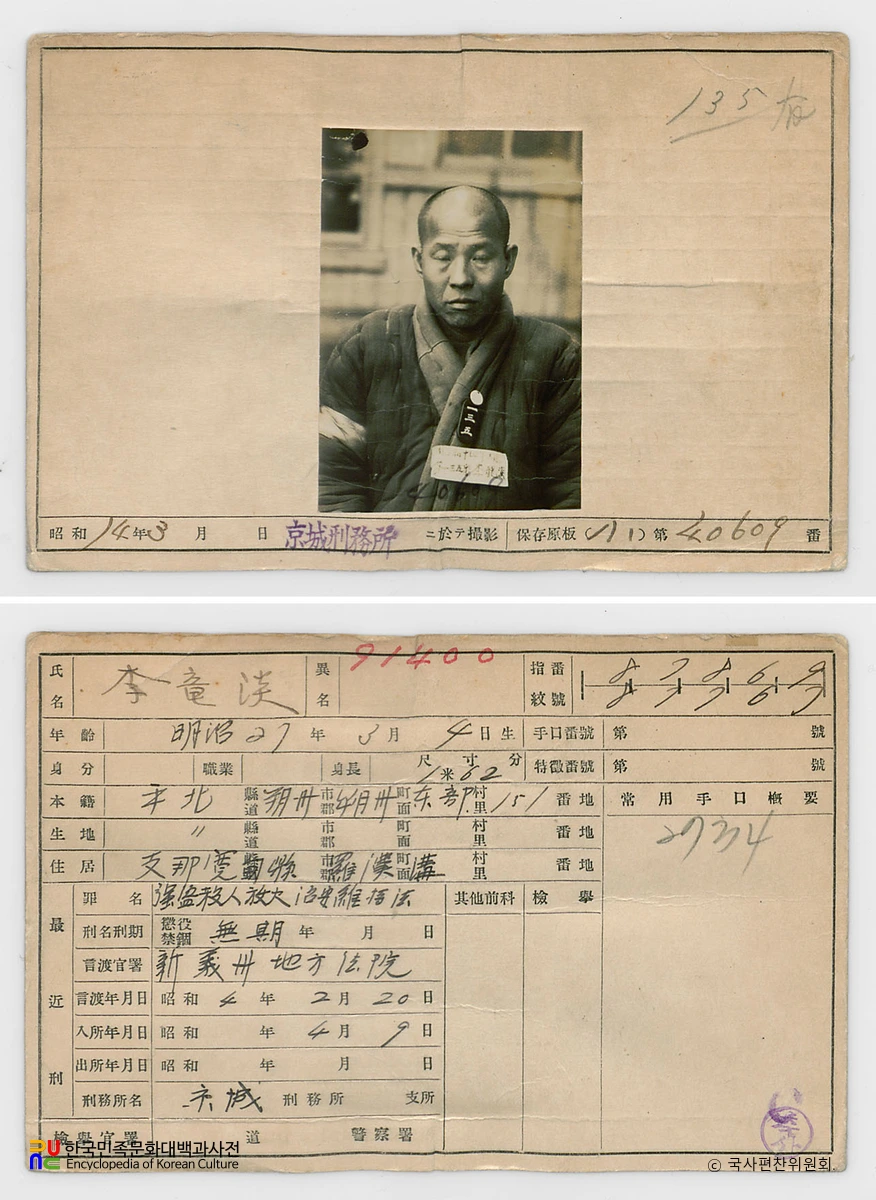 135
昭和14年3月 日 京城刑務所ニ於テ撮影 保存原板 第40609番
一三五
40609
91400
氏名 李竜淡 異名 指紋番號
年齢 明治27年3月4日生 手口番號 第 號
身分 職業 身長 尺寸分 1米62 特徵番號 第 號
本籍 平北 縣道 朔州 市郡 町面 村里 151 番地 常用手口槪要
2734
生地 〃 縣道 市郡 町面 村里 番地
住居 支那寛甸縣 市郡 町面 溝 村里 番地
最近刑
罪名 强盗殺人放火治安維持法 其他前科 檢擧
刑名刑期 懲役 禁錮 無期 年 月 日
言渡官署 新義州地方法院
言渡年月日 昭和4年2月20日
入所年月日 昭和 年4月9日
出所年月日 昭和 年 月 日
刑務所名 京城 刑務所 支所
檢擧官署 道 警察署
한국민족문화대백과사전
Encyclopedia of Korean Culture
© 국사편찬위원회